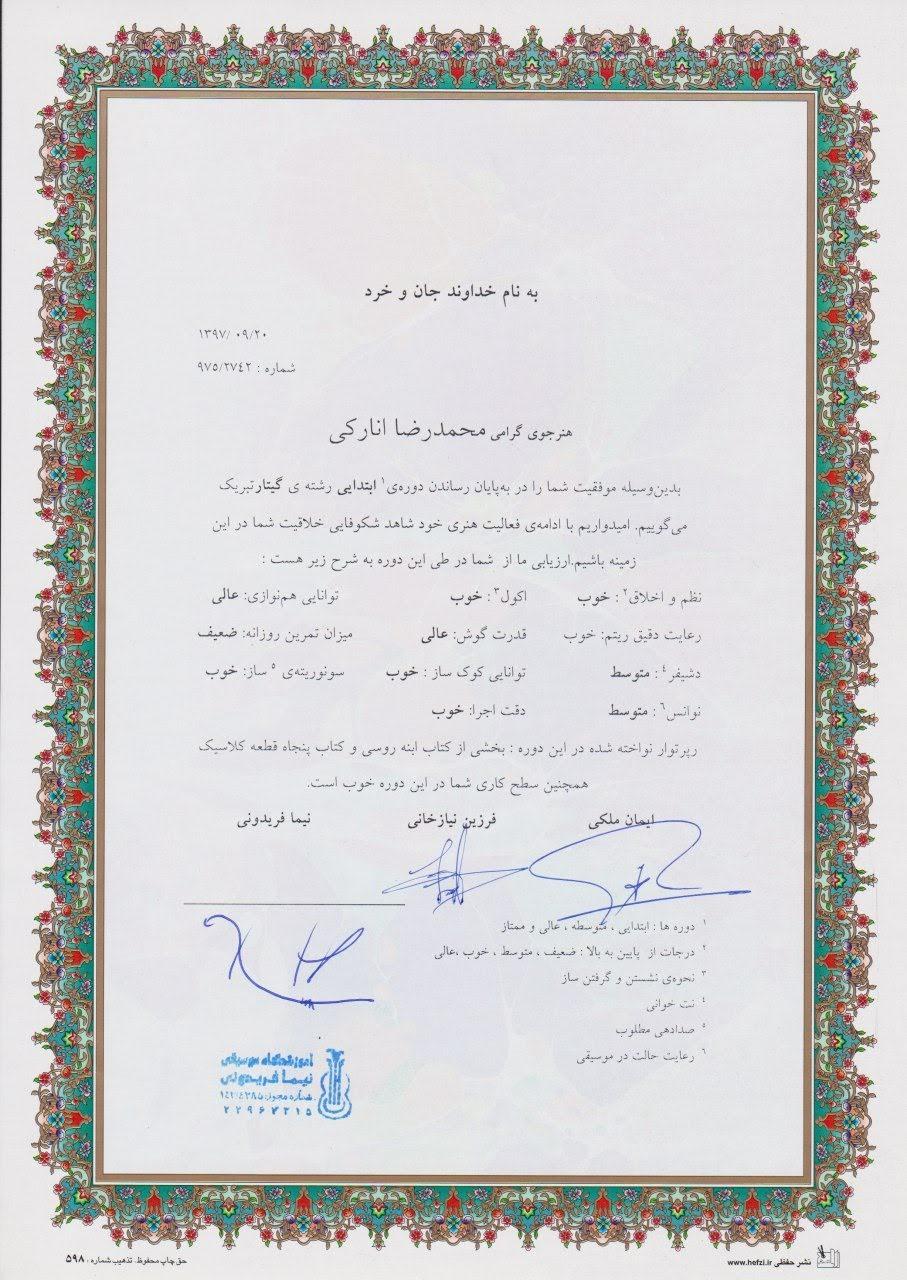 به نام خداوند جان و خرد
۱۳۹۷/ ۰۹/۲۰
شماره : ۹۷۵/۲۷۴۲
هنرجوی گرامی محمدرضا انارکی
بدین‌وسیله موفقیت شما را در به‌پایان رساندن دوره‌ی۱ ابتدایی رشته ی گیتارتبریک
می‌گوییم. امیدواریم با ادامه‌ی فعالیت هنری خود شاهد شکوفایی خلاقیت شما در این
زمینه باشیم.ارزیابی ما از شما در طی این دوره به شرح زیر هست :
نظم و اخلاق۲ : خوب اکول۳ : خوب توانایی هم‌نوازی: عالی
رعایت دقیق ریتم: خوب قدرت گوش: عالی میزان تمرین روزانه: ضعیف
دشیفر۴ : متوسط توانایی کوک ساز : خوب سونوریته‌ی ۵ ساز: خوب
نوانس۶ : متوسط دقت اجرا: خوب
رپرتوار نواخته شده در این دوره : بخشی از کتاب ابنه روسی و کتاب پنجاه قطعه کلاسیک
همچنین سطح کاری شما در این دوره خوب است.
ایمان ملکی فرزین نیازخانی نیما فریدونی
۱ دوره ها : ابتدایی ، متوسطه ، عالی و ممتاز
۲ درجات از پایین به بالا : ضعیف ، متوسط ، خوب ،عالی
۳ نحوه‌ی نشستن و گرفتن ساز
۴ نت خوانی
۵ صدادهی مطلوب
۶ رعایت حالت در موسیقی
آموزشگاه موسیقی
نیما فریدونی
شماره مجوز: ۱۴۲/۴۲۸۵
۲۲۹۶۷۲۱۵
نشر حفظی www.hefzi.ir
حق چاپ محفوظ. تذهیب شماره : ۵۹۸